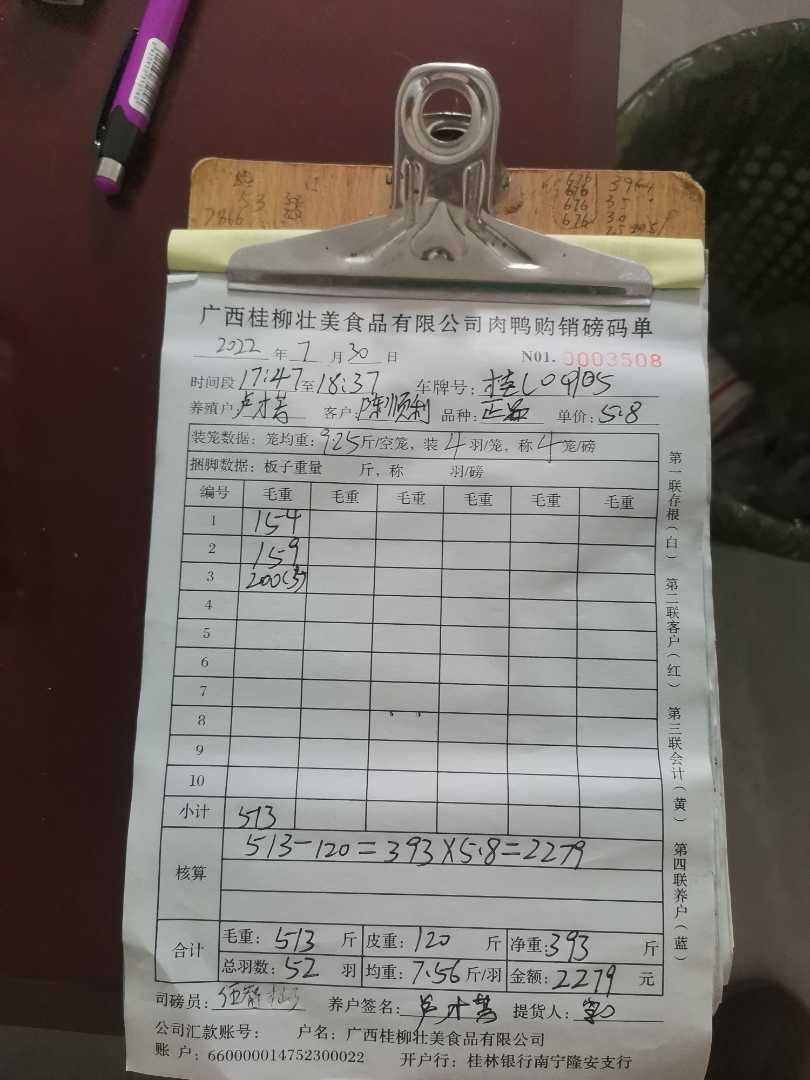 676 396
676 35
676 30
7866 53
广西桂柳壮美食品有限公司肉鸭购销磅码单
2022 年 7 月 30 日 N01. 0003508
时间段 17:47 至 18:37 车牌号: 桂L09105
养殖户: 卢才苦 客户: 陈顺利 品种: 正品 单价: 5.8
装笼数据: 笼均重: 9.25 斤/空笼, 装 4 羽/笼, 称 4 笼/磅
捆脚数据: 板子重量 斤, 称 羽/磅
编号 毛重 毛重 毛重 毛重 毛重 毛重
1 154
2 159
3 200(5)
4
5
6
7
8
9
10
小计 513
核算 513-120=393×5.8=2279
合计 毛重: 513 斤 皮重: 120 斤 净重: 393 斤
总羽数: 52 羽 均重: 7.56 斤/羽 金额: 2279 元
司磅员: 养户签名: 提货人:
公司汇款账号: 户名: 广西桂柳壮美食品有限公司
账 户: 660000014752300022 开户行: 桂林银行南宁隆安支行
第一联存根(白) 第二联客户(红) 第三联会计(黄) 第四联养户(蓝)